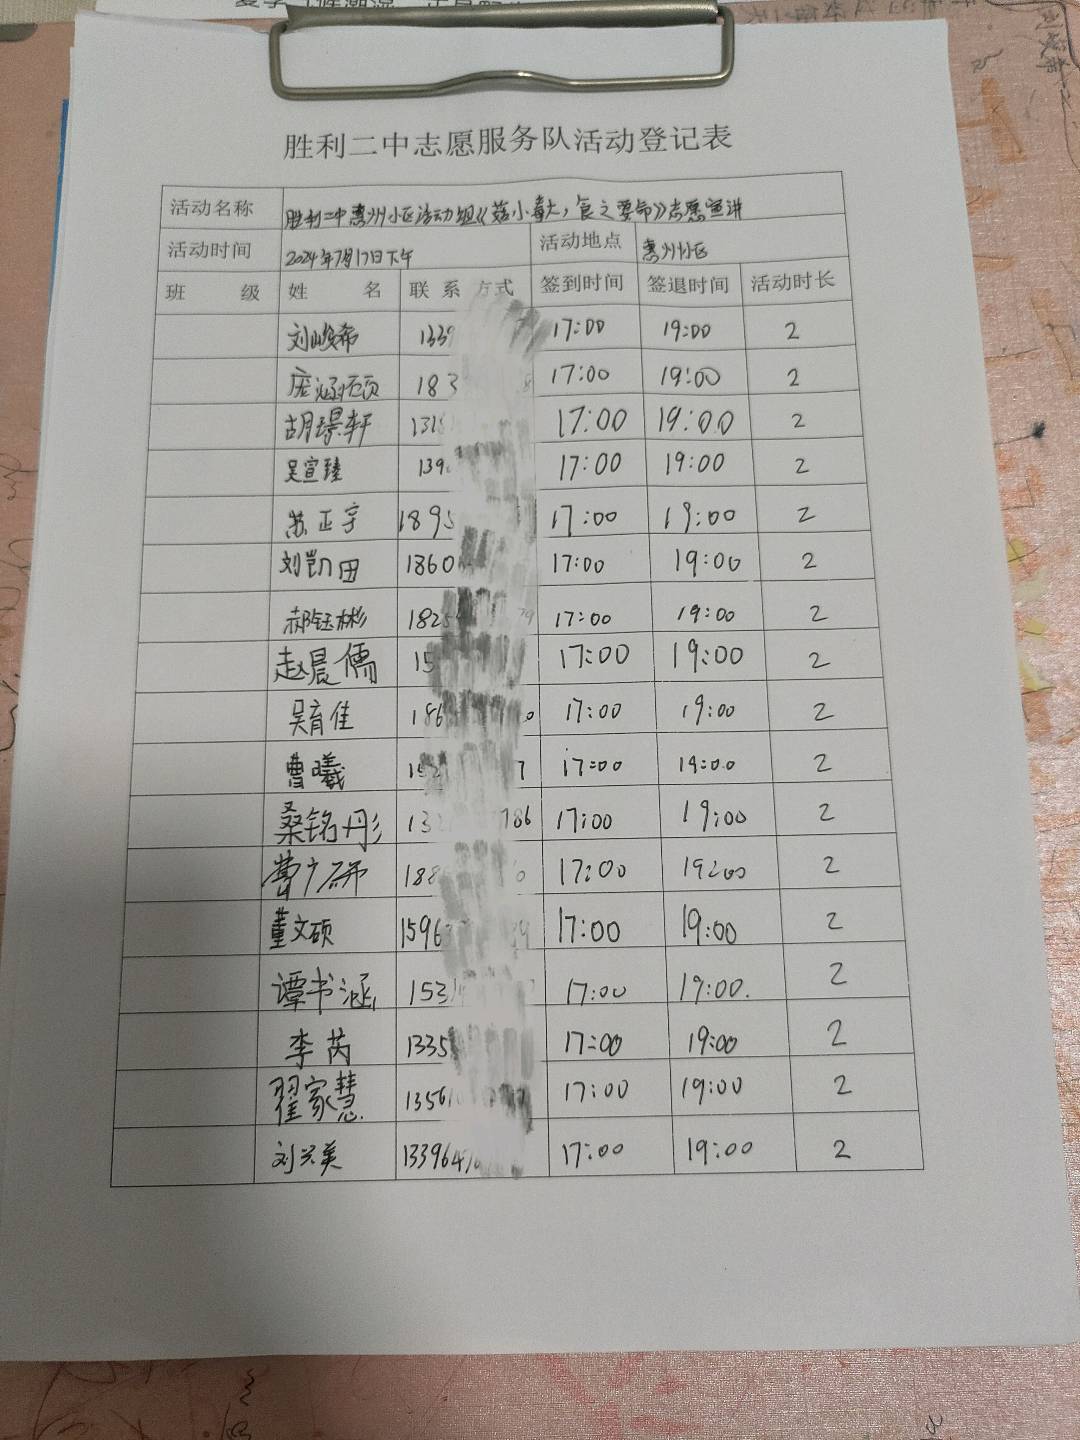 胜利二中志愿服务队活动登记表
活动名称 胜利二中惠州小区活动组《菇小毒大，食之要命》志愿宣讲
活动时间 2024年7月17日下午 活动地点 惠州小区
班 级 姓 名 联 系 方式 签到时间 签退时间 活动时长
刘峻希 1339 17:00 19:00 2
庞涵硕 183 8 17:00 19:00 2
胡璟轩 1318 17:00 19:00 2
吴宣臻 139 17:00 19:00 2
苏正宇 1895 17:00 19:00 2
刘凯田 1860 17:00 19:00 2
郝钰彬 1825 79 17:00 19:00 2
赵晨儒 15 17:00 19:00 2
吴育佳 186 0 17:00 19:00 2
曹曦 152 7 17:00 19:00 2
桑铭彤 132 786 17:00 19:00 2
188 0 17:00 19:00 2
董文硕 1596 39 17:00 19:00 2
谭书涵 153 17:00 19:00. 2
李芮 1335 17:00 19:00 2
翟家慧 1356 17:00 19:00 2
刘兴美 133964 17:00 19:00 2